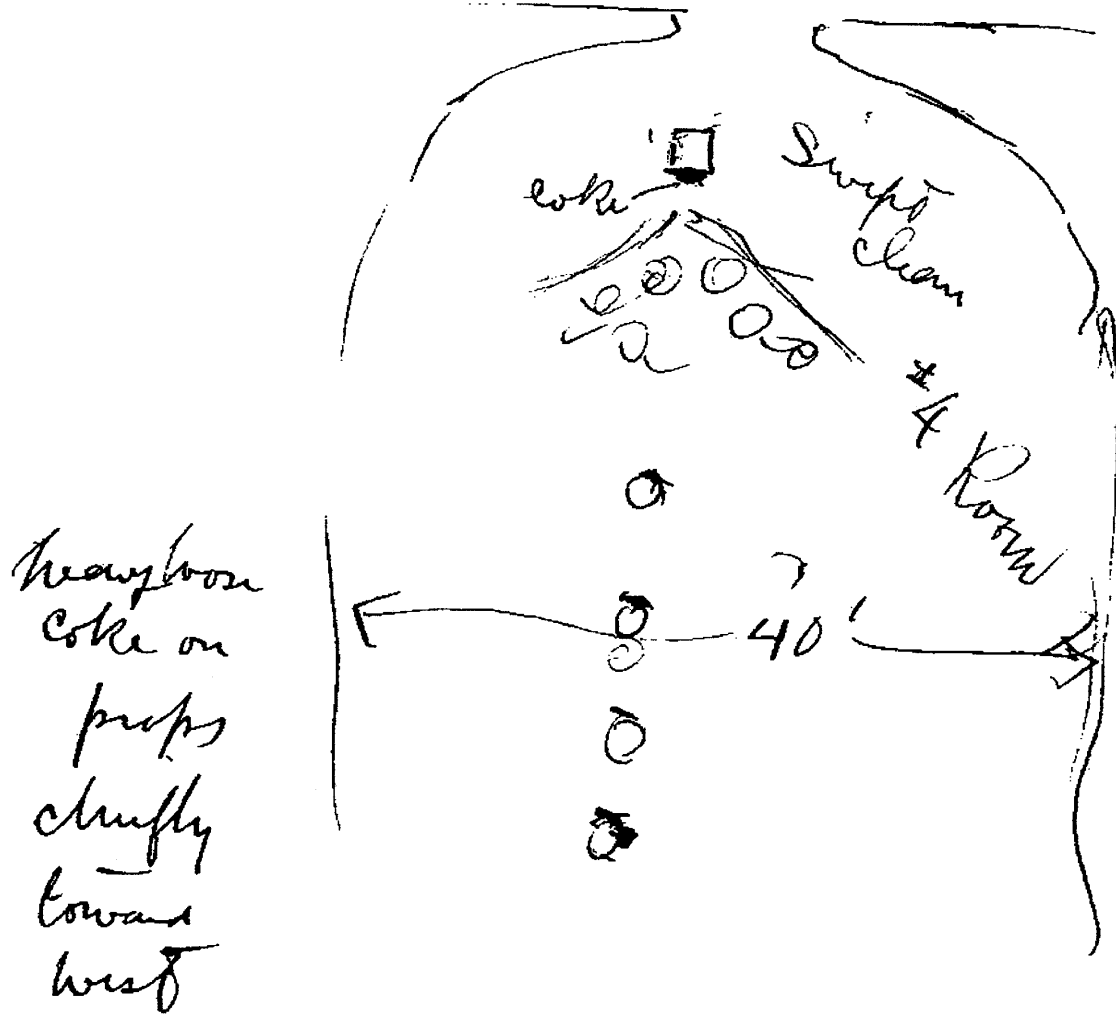 coke
Swept
clean
#4
Room
40'
heavy loose
coke on
props
chiefly
toward
west